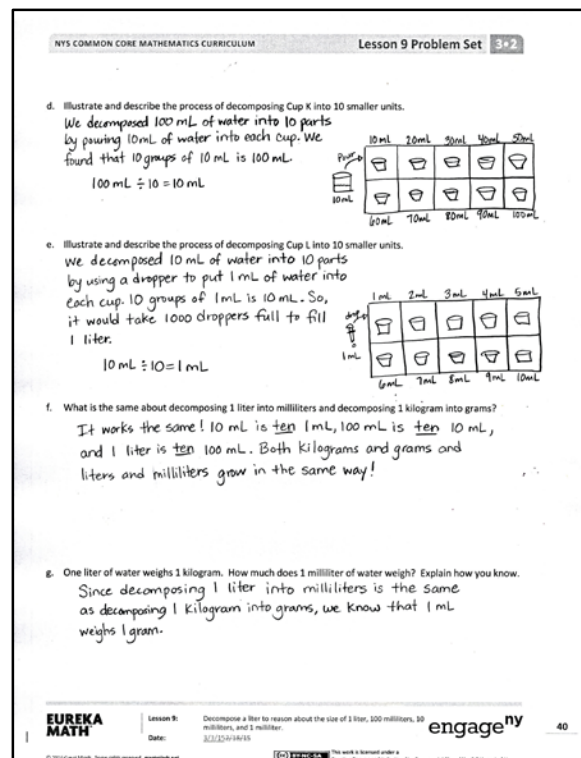 NYS COMMON CORE MATHEMATICS CURRICULUM
Lesson 9 Problem Set 3•2
d. Illustrate and describe the process of decomposing Cup K into 10 smaller units.
We decomposed 100 mL of water into 10 parts
by pouring 10mL of water into each cup. We
found that 10 groups of 10 mL is 100 mL.
100 mL ÷ 10 = 10 mL
10mL 20mL 30mL 40mL 50mL
Pour
10mL
60mL 70mL 80mL 90mL 100mL
e. Illustrate and describe the process of decomposing Cup L into 10 smaller units.
We decomposed 10 mL of water into 10 parts
by using a dropper to put 1 mL of water into
each cup. 10 groups of 1mL is 10 mL. So,
it would take 1000 droppers full to fill
1 liter.
10 mL ÷ 10 = 1 mL
1mL 2mL 3mL 4mL 5mL
1mL
6mL 7mL 8mL 9mL 10mL
f. What is the same about decomposing 1 liter into milliliters and decomposing 1 kilogram into grams?
It works the same! 10 mL is ten 1mL, 100 mL is ten 10 mL,
and 1 liter is ten 100 mL. Both kilograms and grams and
liters and milliliters grow in the same way!
g. One liter of water weighs 1 kilogram. How much does 1 milliliter of water weigh? Explain how you know.
Since decomposing 1 liter into milliliters is the same
as decomposing 1 kilogram into grams, we know that 1 mL
weighs 1 gram.
EUREKA
MATH
Lesson 9:
Decompose a liter to reason about the size of 1 liter, 100 milliliters, 10
milliliters, and 1 milliliter.
Date:
engageny
40
This work is licensed under a